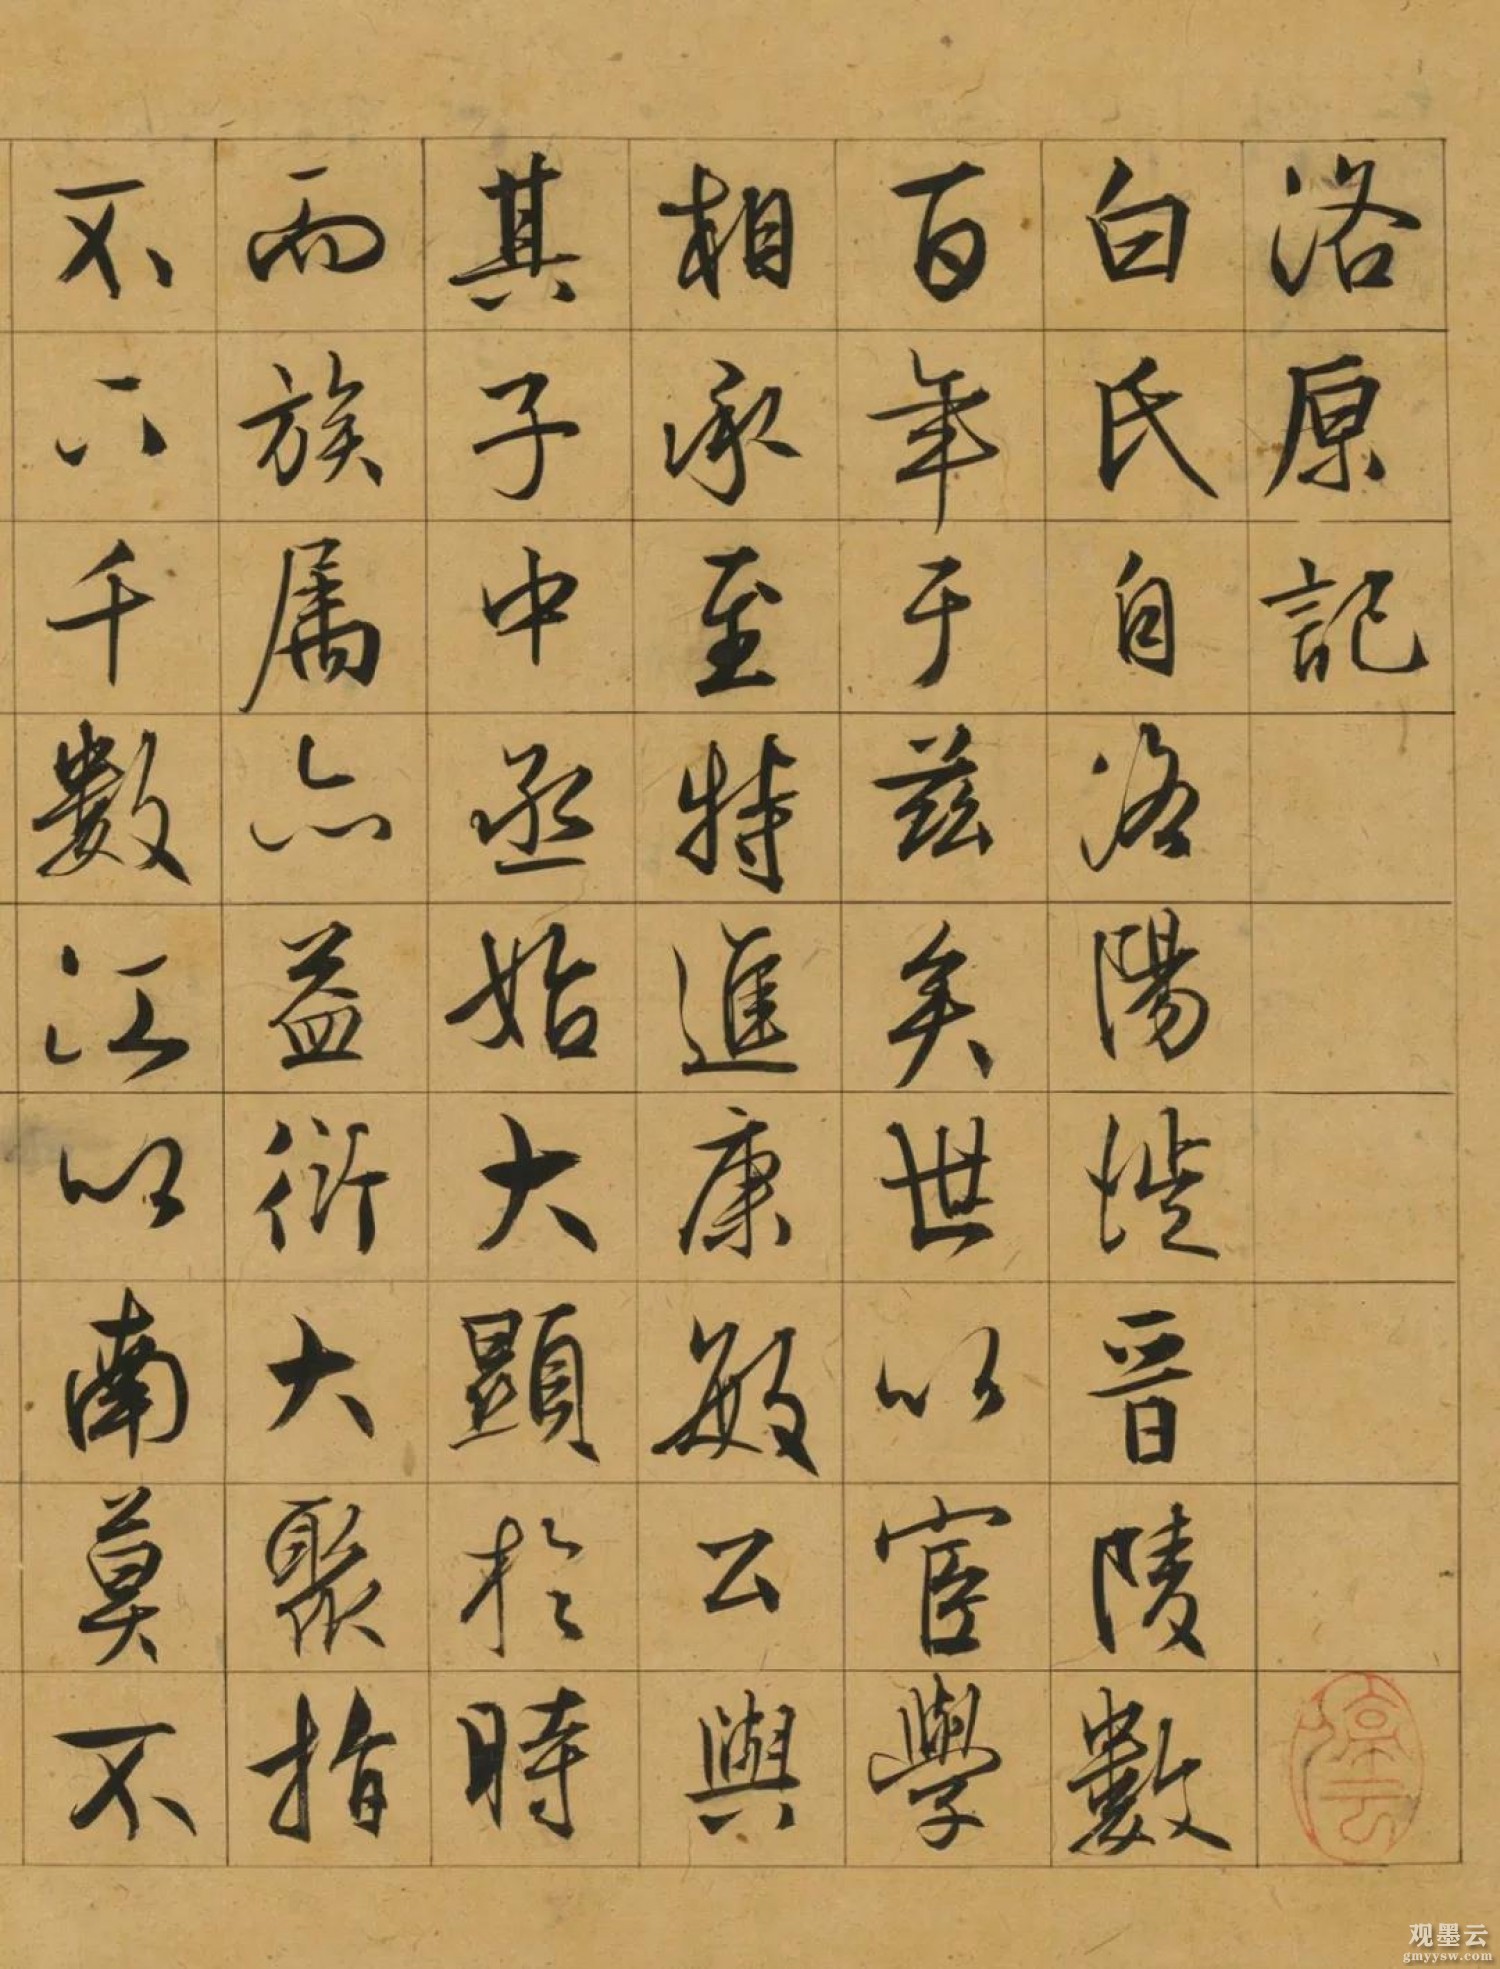 洛原記
白氏自洛陽徙晉陵數
百年于茲矣世以宦學
相承至特進康敏公與
其子中丞始大顯於時
而族屬亦益衍大聚指
不下千數江以南莫不
停云
观墨云
gmyysw.com